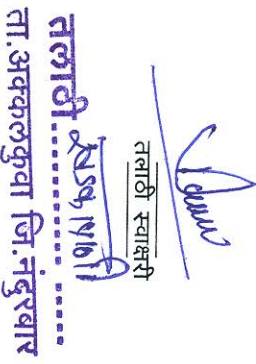 तलाठी स्वाक्षरी
तलाठी
ता.अक्कलकुवा जि.नंदुरबार